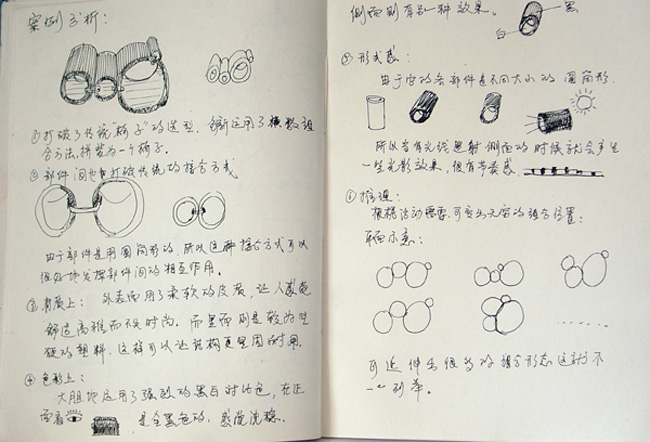 案例分析：
①打破了传统"椅子"的造型，创新运用了模数组
合方法，拼装为一个椅子。
②部件间也打破传统的接合方式
由于部件是用圆筒形的，所以这种接合方式可以
很好地发挥部件间的相互作用。
③材质上：外表面用了柔软的皮质，让人感觉
舒适高雅而不失时尚。而里面则是较为坚
硬的塑料，这样可以让结构更坚固耐用。
④色彩上：
大胆地运用了强烈的黑白对比色，在正
面看 是全黑色的，感觉沉稳。
侧面则有另一种效果。
白 黑
⑤形式感：
由于它的各部件是不同大小的圆筒形，
所以当有光线照射侧面的时候就会产生
一些光影效果，很有节奏感。
⑥推理：
根据活动需要，可变出无穷的组合位置：
平面示意：
可延伸出很多的组合形态这就不
一一列举。